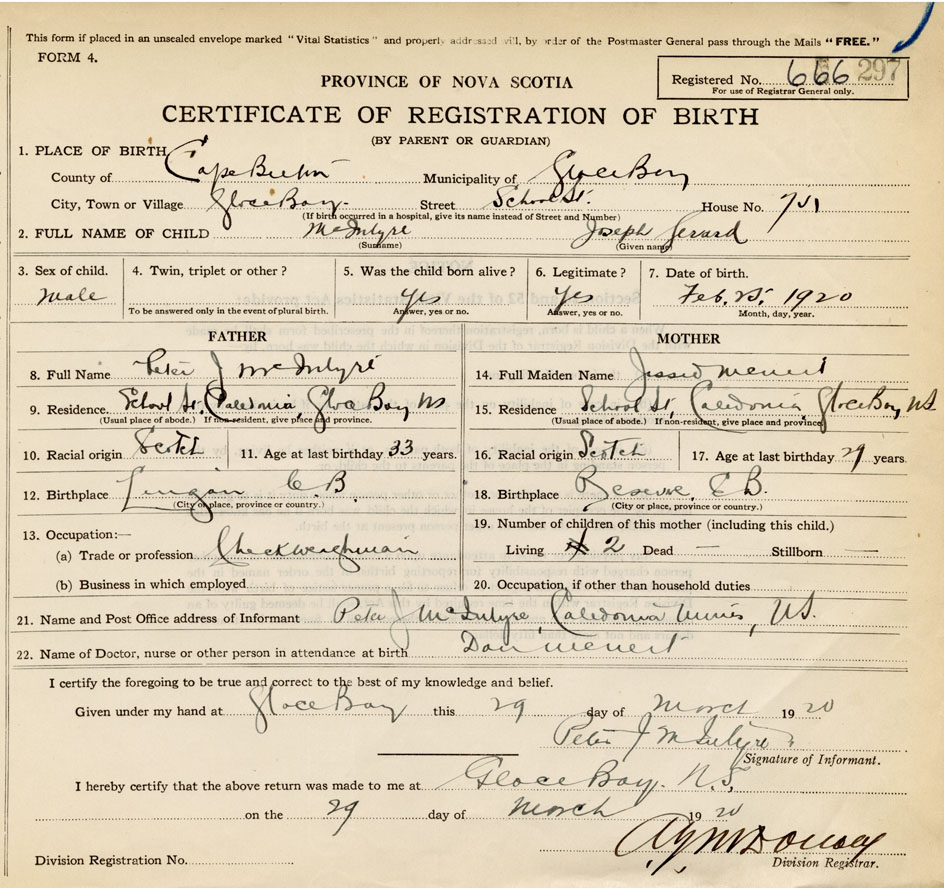 This form if placed in an unsealed envelope marked "Vital Statistics" and properly addressed will, by order of the Postmaster General pass through the Mails "FREE."
FORM 4.
PROVINCE OF NOVA SCOTIA
Registered No. 666 297
For use of Registrar General only.
CERTIFICATE OF REGISTRATION OF BIRTH
(BY PARENT OR GUARDIAN)
1. PLACE OF BIRTH
County of Cape Breton Municipality of Glace Bay
City, Town or Village Glace Bay. Street School St. House No. 751
(If birth occurred in a hospital, give its name instead of Street and Number)
2. FULL NAME OF CHILD McIntyre Joseph Gerard
(Surname) (Given name)
3. Sex of child. 4. Twin, triplet or other? 5. Was the child born alive? 6. Legitimate? 7. Date of birth.
Male Yes Yes Feb. 25. 1920
To be answered only in the event of plural birth. Answer, yes or no. Answer, yes or no. Month, day, year.
FATHER MOTHER
8. Full Name Peter J McIntyre 14. Full Maiden Name Jessie
9. Residence. School St, Caledonia, Glace Bay NS 15. Residence School St, Caledonia, Glace Bay, N.S.
(Usual place of abode.) If non-resident, give place and province. (Usual place of abode.) If non-resident, give place and province
10. Racial origin Scotch 11. Age at last birthday 33 years. 16. Racial origin Scotch 17. Age at last birthday years.
12. Birthplace Lingan C.B. 18. Birthplace Reserve, C.B.
(City or place, province or country.) (City or place, province or country.)
13. Occupation:— 19. Number of children of this mother (including this child.)
(a) Trade or profession Checkweighman Living 2 Dead — Stillborn —
(b) Business in which employed 20. Occupation, if other than household duties
21. Name and Post Office address of Informant Peter J McIntyre, Caledonia Mines, N.S.
22. Name of Doctor, nurse or other person in attendance at birth Dan
I certify the foregoing to be true and correct to the best of my knowledge and belief.
Given under my hand at Glace Bay this 29 day of March 1920
Peter J McIntyre
Signature of Informant.
I hereby certify that the above return was made to me at Glace Bay. N.S.
on the 29 day of March 1920
Division Registration No. Division Registrar.